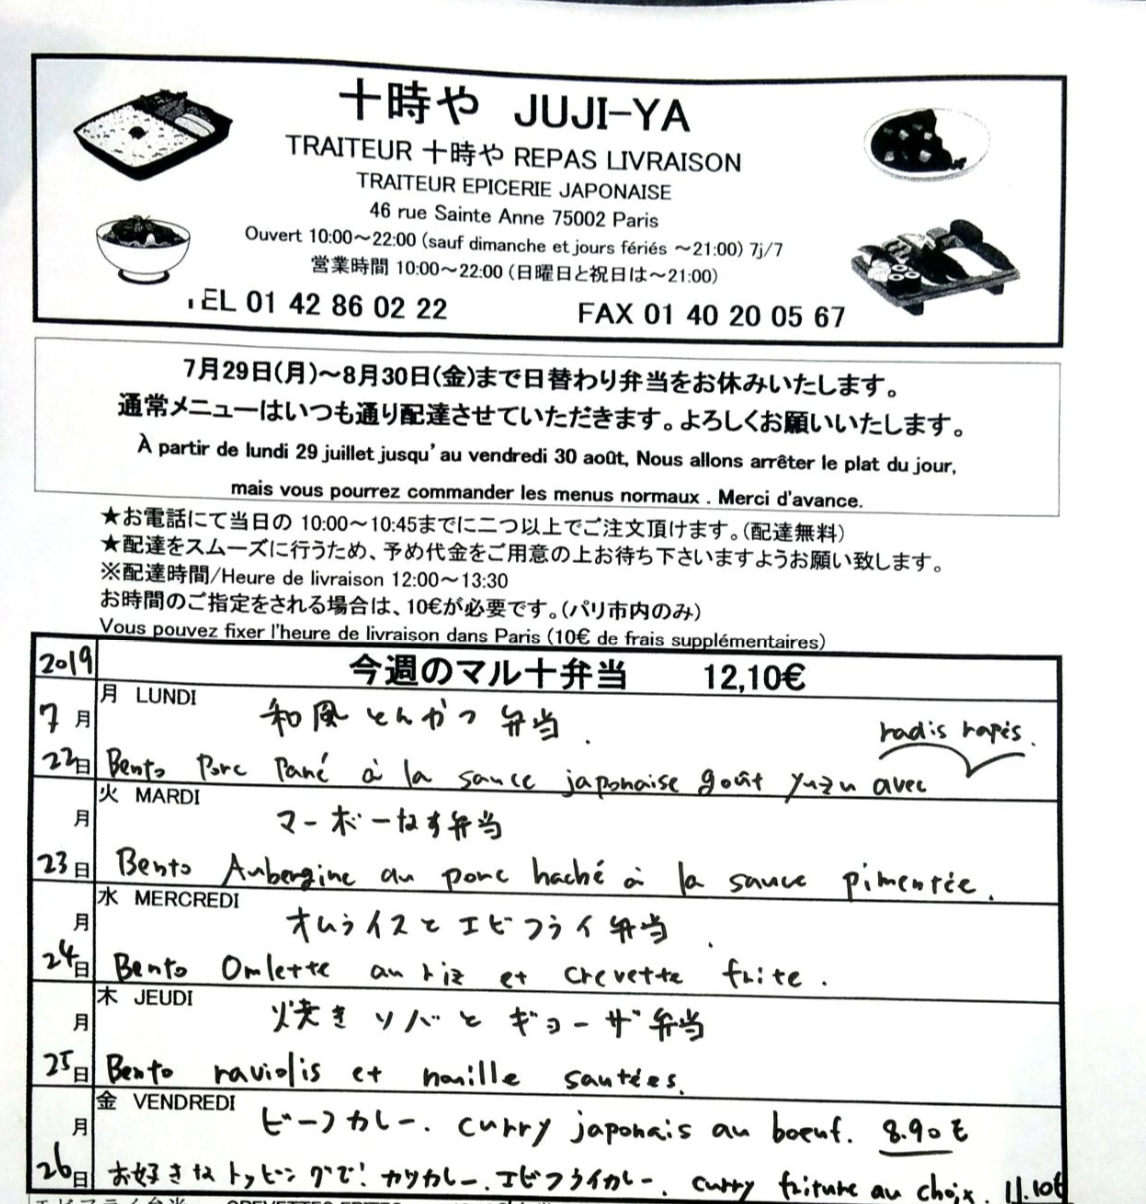 十時や JUJI-YA
TRAITEUR 十時や REPAS LIVRAISON
TRAITEUR EPICERIE JAPONAISE
46 rue Sainte Anne 75002 Paris
Ouvert 10:00～22:00 (sauf dimanche et jours fériés ～21:00) 7j/7
営業時間 10:00～22:00 (日曜日と祝日は～21:00)
TEL 01 42 86 02 22 FAX 01 40 20 05 67
7月29日(月)～8月30日(金)まで日替わり弁当をお休みいたします。
通常メニューはいつも通り配達させていただきます。よろしくお願いいたします。
À partir de lundi 29 juillet jusqu'au vendredi 30 août, Nous allons arrêter le plat du jour,
mais vous pourrez commander les menus normaux . Merci d'avance.
★お電話にて当日の 10:00～10:45までに二つ以上でご注文頂けます。(配達無料)
★配達をスムーズに行うため、予め代金をご用意の上お待ち下さいますようお願い致します。
※配達時間/Heure de livraison 12:00～13:30
お時間のご指定をされる場合は、10€が必要です。(パリ市内のみ)
Vous pouvez fixer l'heure de livraison dans Paris (10€ de frais supplémentaires)
2019 今週のマル十弁当 12,10€
月 LUNDI
7月 和風とんかつ弁当.
radis rapés.
22日 Bento Porc Pané à la sauce japonaise goût yuzu avec
火 MARDI
月 マーボーなす弁当
23日 Bento Aubergine au porc haché à la sauce pimentée.
水 MERCREDI
月 オムライスとエビフライ弁当.
24日 Bento Omlette au riz et crevette frite.
木 JEUDI
月 焼きソバとギョーザ弁当
25日 Bento raviolis et nouille sautées.
金 VENDREDI
月 ビーフカレー. curry japonais au boeuf. 8.90€
26日 お好きなトッピングで! カツカレー. エビフライカレー. curry friture au choix. 11.10€